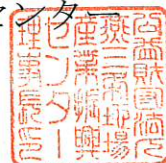 ンタ
公益財団法人
燕三条地場
産業振興
センター
理事長印